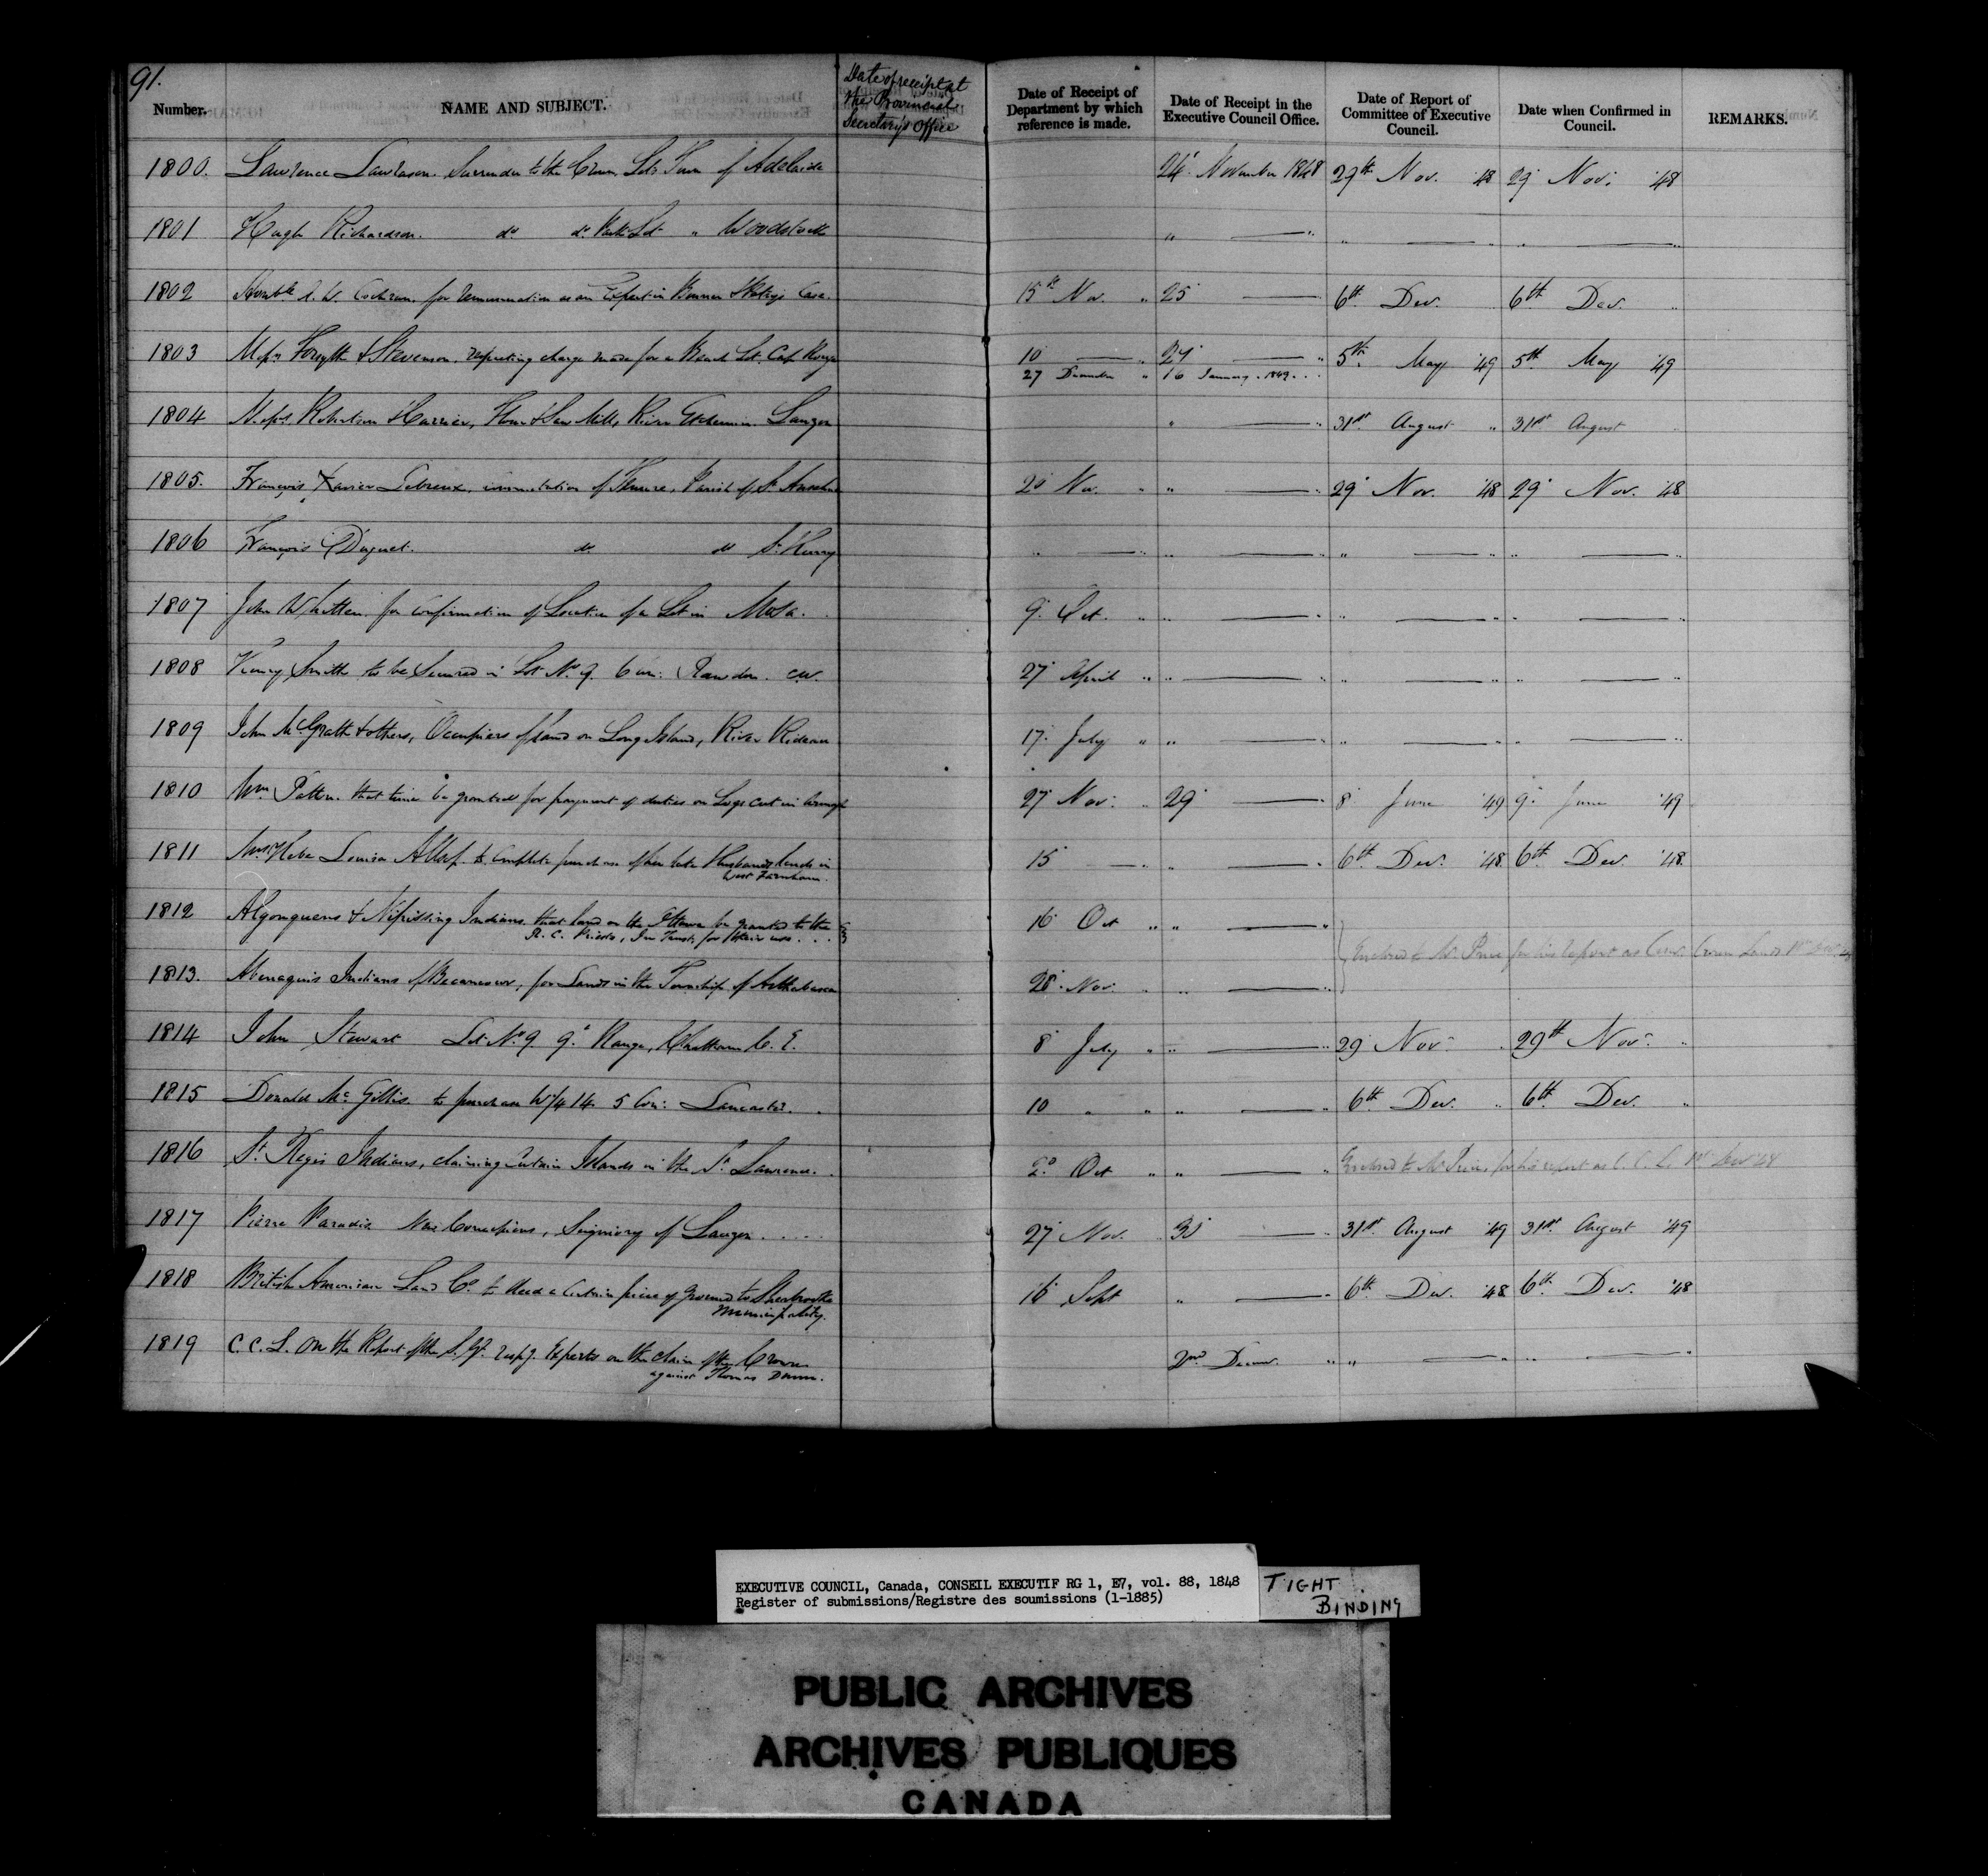 91.
Number. NAME AND SUBJECT. Date of receipt at the Provincial Secretary's Office Date of Receipt of Department by which reference is made. Date of Receipt in the Executive Council Office. Date of Report of Committee of Executive Council. Date when Confirmed in Council. REMARKS.
1800. Lawrence Lawrason. Surrender to the Crown Lots Town of Adelaide 24 November 1848 29th Nov. '48 29 Nov. '48
1801 Hugh Richardson. do do Park Lot " Woodstock " " "
1802 Honble A. W. Cochran. for remuneration as an Expert in Case. 15th Nov. " 25 6th Dec. 6th Dec.
1803 Messrs Forsyth & Stevenson, respecting charge made for a Beach Lot, Cap Rouge 10 " 27 " 5th May '49 5th May '49
27 December " 16 January 1849
1804 Messrs Robertson & Harrier, Flour & Saw Mill, River Etchemin. Lauzon " 31st August " 31st August
1805. François Xavier Lebreux, commutation of Tenure, Parish of St Anselme 20 Nov. " " 29 Nov. '48 29 Nov. '48
1806 François Duquet. do do St Henry " " " "
1807 John Whitten. for confirmation of Location of a Lot in Mosa. 9 Oct. " " " "
1808 Henry Smith to be secured in Lot No 9. 6 con: Rawdon. C.W. 27 April " " " "
1809 John McGrath & others, Occupiers of land on Long Island, River Rideau 17 July " " " "
1810 Wm Patton. that time be granted for payment of duties on Logs cut in 27 Nov. " 29 8 June '49 9 June '49
1811 Mrs Louisa to complete purchase of her late Husband's lands in West Farnham. 15 " 6th Dec. '48 6th Dec. '48.
1812 Algonquens & Nipissing Indians. that land on the Ottawa be granted to the R. C. Priests, In Trust, for their use... 16 Oct " "
Enclosed to Mr Price for his Report as Com. Crown Lands 1st Dec.
1813. Abenaquis Indians of Becancour, for Lands in the Township of Arthabasca 28 Nov. "
1814 John Stewart Lot No 9. 9 Range, Chatham C. E. 8 July " " 29 Nov. 29th Nov. "
1815 Donald McGillis. to purchase W 1/4 14. 5 Con: Lancaster. 10 " " " 6th Dec. " 6th Dec. "
1816 St Regis Indians, claiming Certain Islands in the St Lawrence. 20 Oct " " Enclosed to Mr Price for his report as C. C. L. 1st Dec '48
1817 Pierre Paradis. New Concessions, Seigniory of Lauzon.... 27 Nov. 30 31st August '49 31st August '49
1818 British American Land Co. to deed a Certain piece of ground to Sherbrooke Municipality. 16 Sept " 6th Dec. '48 6th Dec. '48
1819 C. C. L. On the Report of the S. Gl. respg. Experts on the claim of the Crown against Thomas Dunn. 2nd Decemr. " " "
EXECUTIVE COUNCIL, Canada, CONSEIL EXECUTIF RG 1, E7, vol. 88, 1848
Register of submissions/Registre des soumissions (1-1885)
TIGHT
BINDING
PUBLIC ARCHIVES
ARCHIVES PUBLIQUES
CANADA